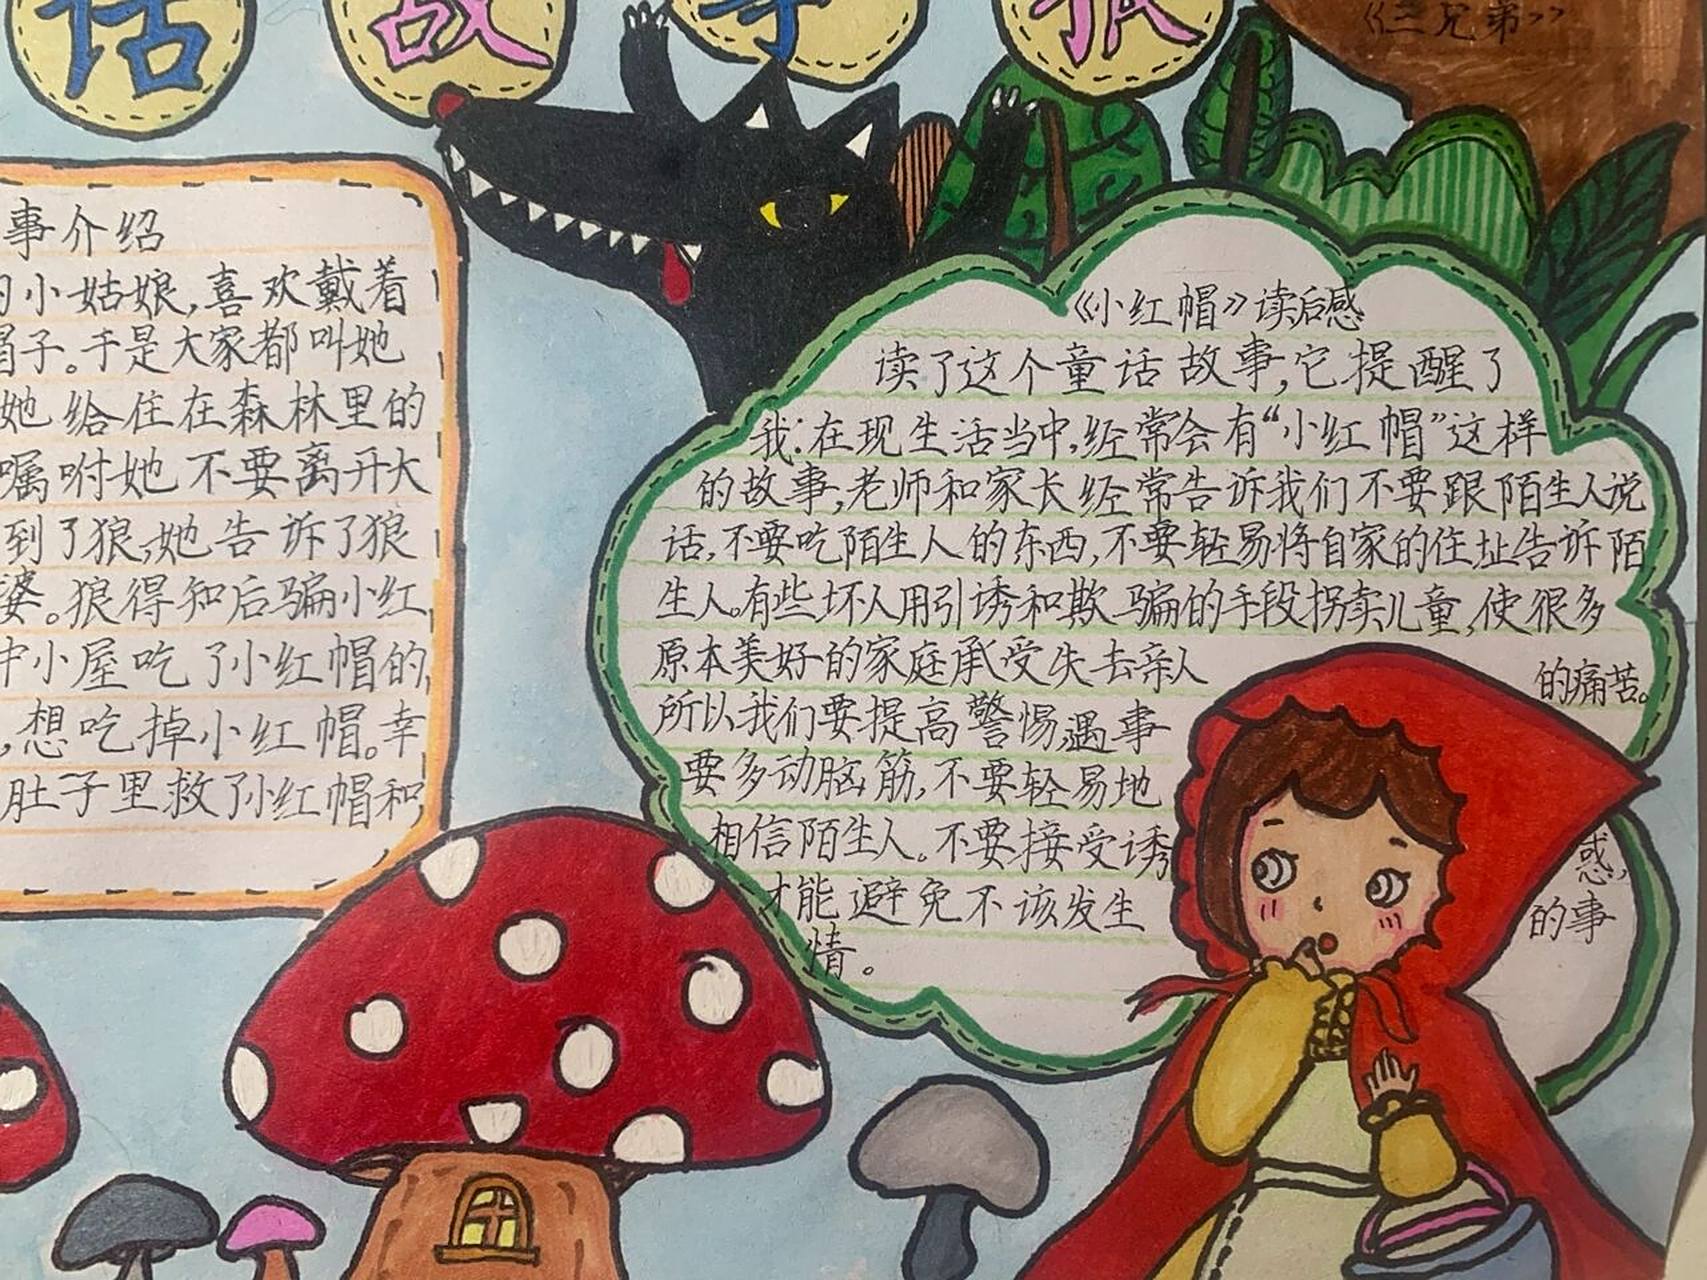 话故事报
《三兄弟》
事介绍
的小姑娘,喜欢戴着
帽子。于是大家都叫她
她给住在森林里的
嘱咐她不要离开大
到了狼,她告诉了狼
婆。狼得知后骗小红
中小屋吃了小红帽的
,想吃掉小红帽。幸
肚子里救了小红帽和
《小红帽》读后感
读了这个童话故事,它提醒了
我:在现生活当中,经常会有“小红帽”这样
的故事,老师和家长经常告诉我们不要跟陌生人说
话,不要吃陌生人的东西,不要轻易将自家的住址告诉陌
生人。有些坏人用引诱和欺骗的手段拐卖儿童,使很多
原本美好的家庭承受失去亲人的痛苦。
所以我们要提高警惕,遇事
要多动脑筋,不要轻易地
相信陌生人。不要接受诱惑,
才能避免不该发生的事
情。